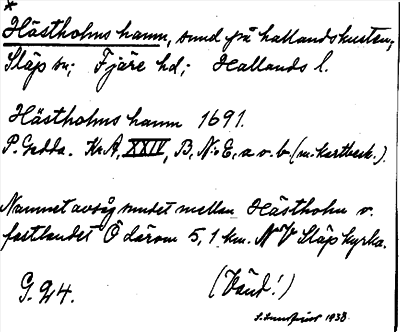 *
Hästholms hamn, sund på hallandskusten;
Släp sn; Fjäre hd; Hallands l.
Hästholms hamn 1691.
P. Gedda. Kr.A, XXIV, B, N:o E, a o. b. (m. kartbeck.).
Namnet avsåg sundet mellan Hästholm o.
fastlandet Ö därom 5,1 km. NV Släps kyrka.
G. 24.
(Vänd!)
1938